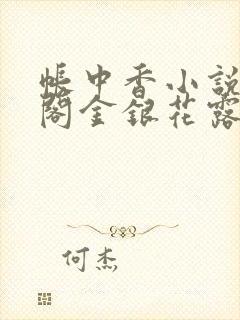 帐中香小説
閣金銀花露
何杰